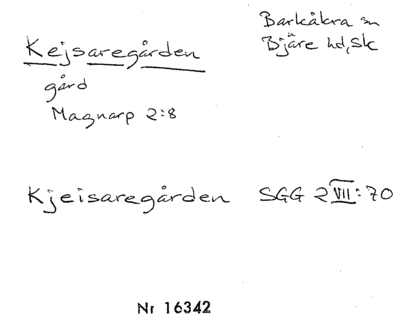 Kejsaregården
Barkåkra sn
Bjäre hd, Sk
gård
Magnarp 2:8
Kjeisaregården SGG 2 VII:70
Nr 16342